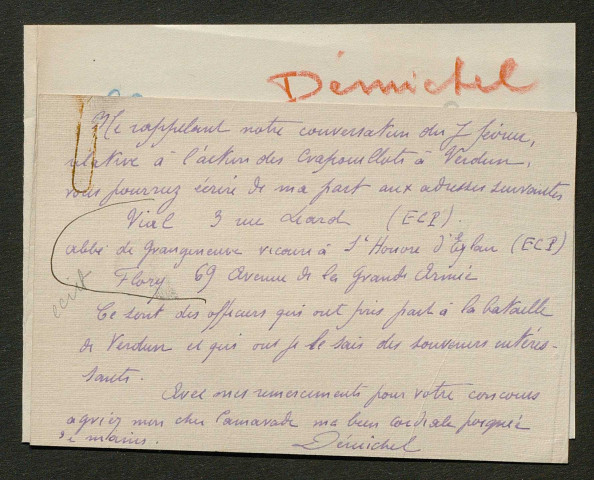 Démichel
Me rappelant notre conversation du 7 février,
relative à l'action des Crapouillots à Verdun,
vous pourrez écrire de ma part aux adresses suivantes
Vial 3 rue (ECP).
abbé de Grangeneuve vicaire à St Honoré d'Eylau (ECP)
Flory 69 Avenue de la Grande Armée
écrit
Ce sont des officiers qui ont pris part à la bataille
de Verdun et qui ont je le sais des souvenirs intéres-
sants.
Avec mes remerciements pour votre concours
agréez mon cher Camarade ma bien cordiale poignée
de mains. Démichel